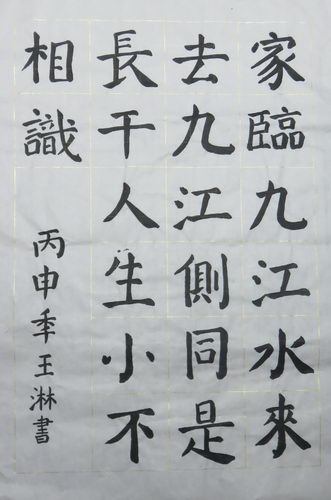 家臨九江水來
去九江側同是
長干人生小不
相識
丙申季王淋書